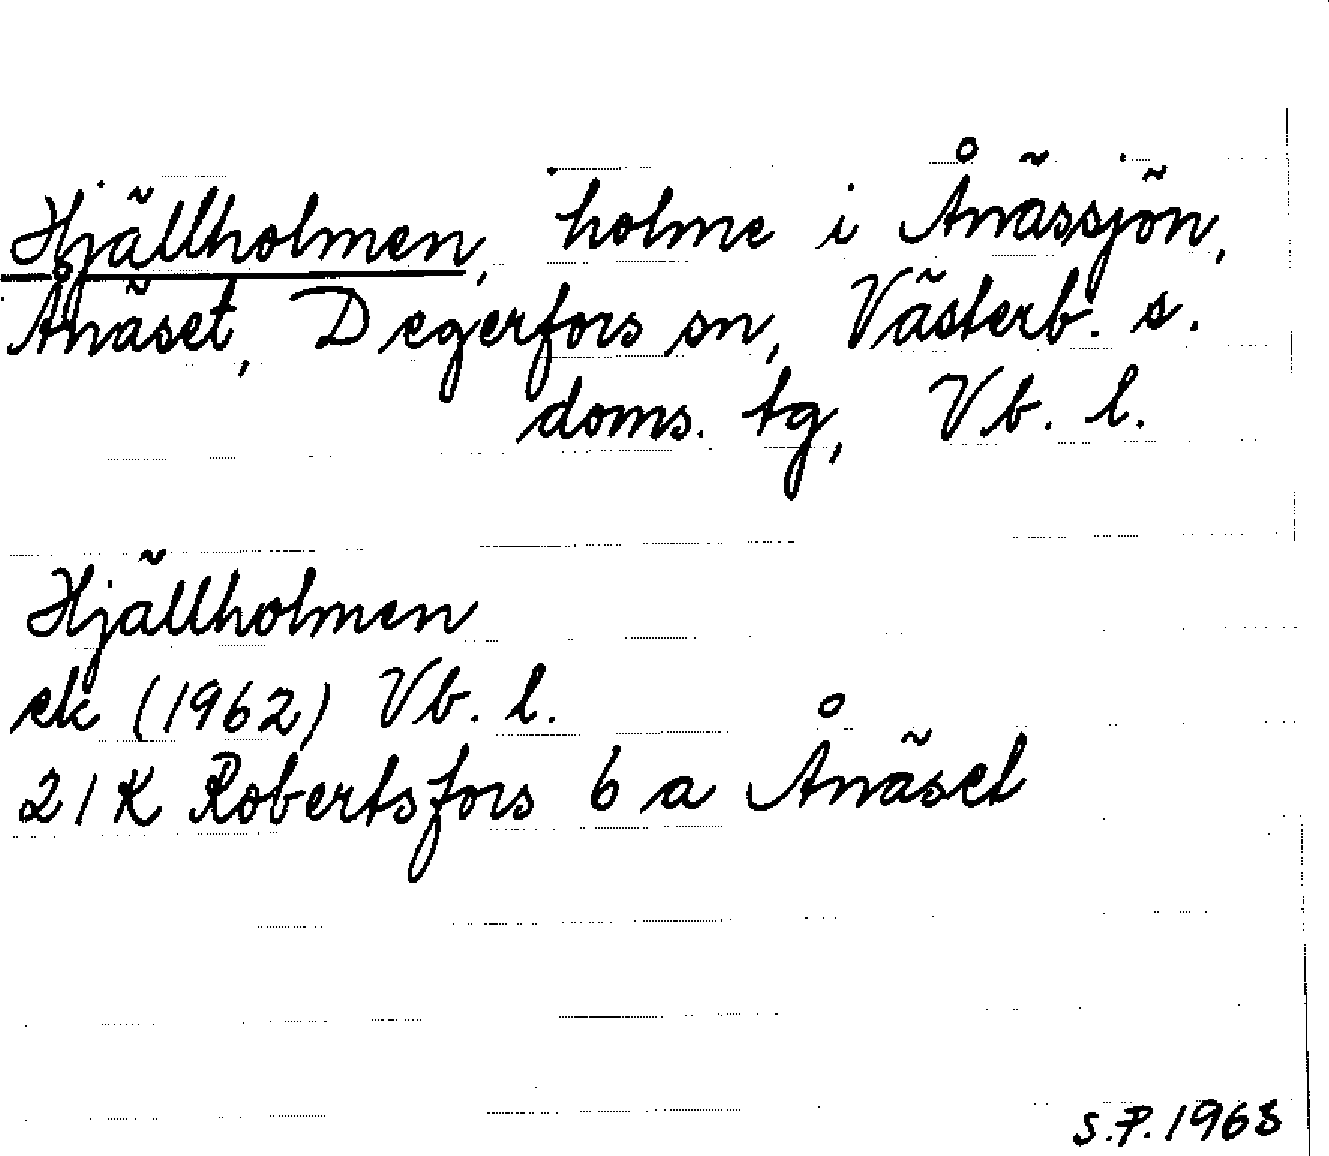 Hjällholmen, holme i Ånässjön,
Ånäset, Degerfors sn, Västerb. s.
doms. tg, Vb. l.
Hjällholmen
ek (1962) Vb. l.
21K Robertsfors 6 a Ånäset
S.P. 1968